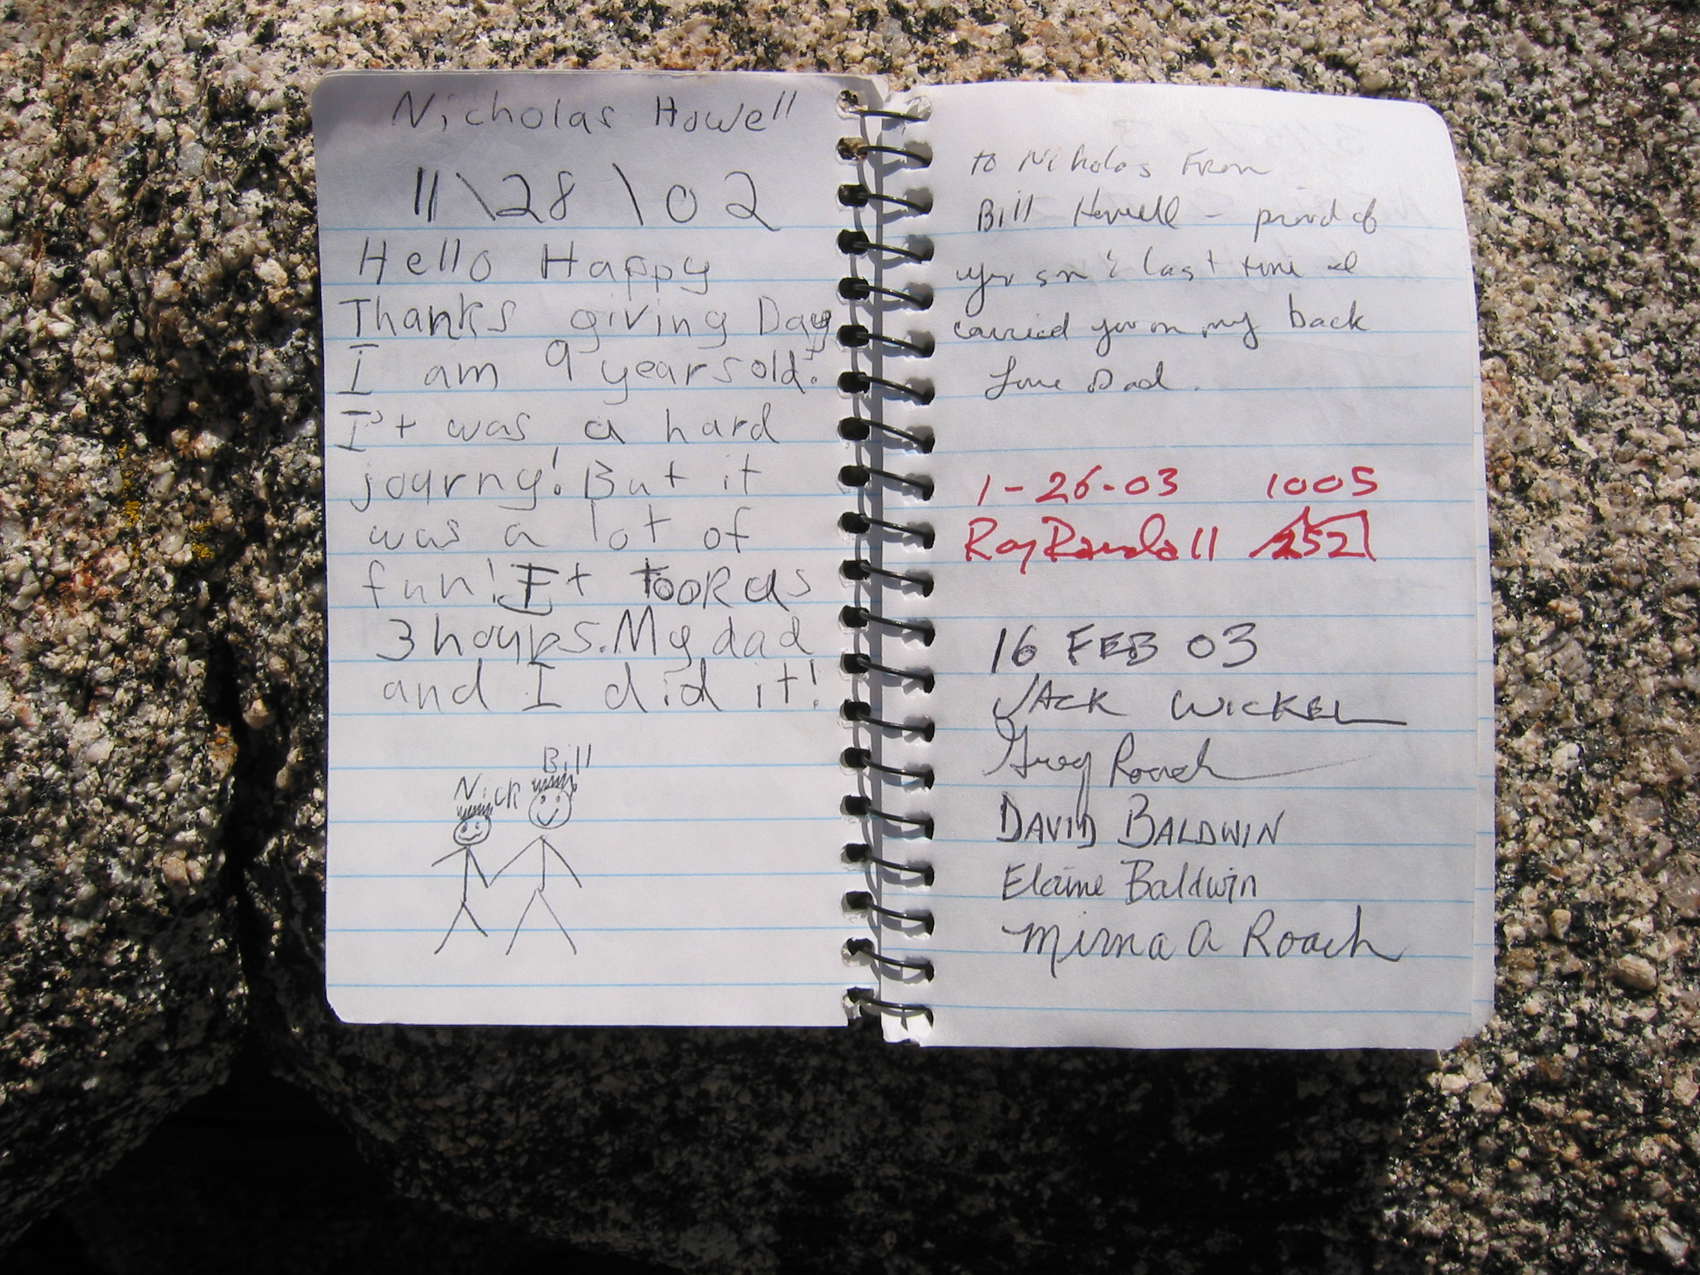 Nicholas Howell
11\28\02
Hello Happy
Thanks giving Day
I am 9 years old.
I't was a hard
journy! But it
was a lot of
fun! It took us
3 hours. My dad
and I did it!
Bill
Nick
to Nicholas From
Bill Howell - proud of
you son! last time I
carried you on my back
Love Dad.
1-26-03 1005
Roy Randall 252
16 FEB 03
JACK WICKEL
Greg Roach
DAVID BALDWIN
Elaine Baldwin
Mirna A Roach